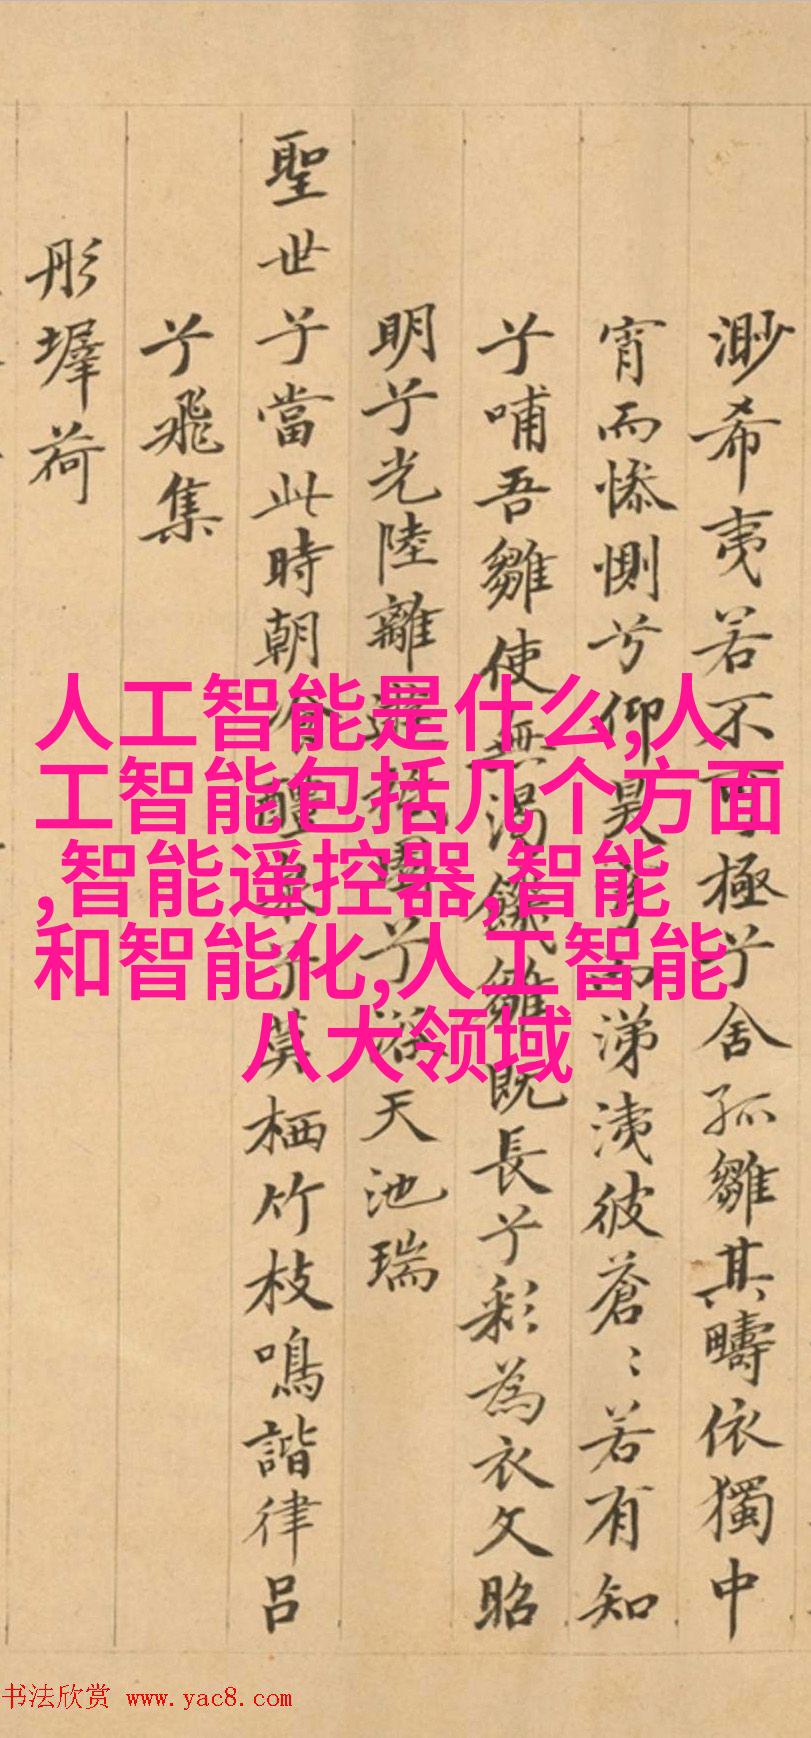 渺希夷若不可極兮舍孤雛其疇依獨中
宵而慘惻兮仰昊穹而涕洟彼蒼〻若有知
兮哺吾雛使無渴饑雛既長兮彩為衣文昭
明兮光陸離遊兮浴天池瑞
聖世兮當此時朝飡醴泉兮莫栖竹枝鳴諧律呂
兮飛集
彤墀荷
人工智能是什么,人
工智能包括几个方面
,智能遥控器,智能
和智能化,人工智能
八大领域
书法欣赏 www.yac8.com